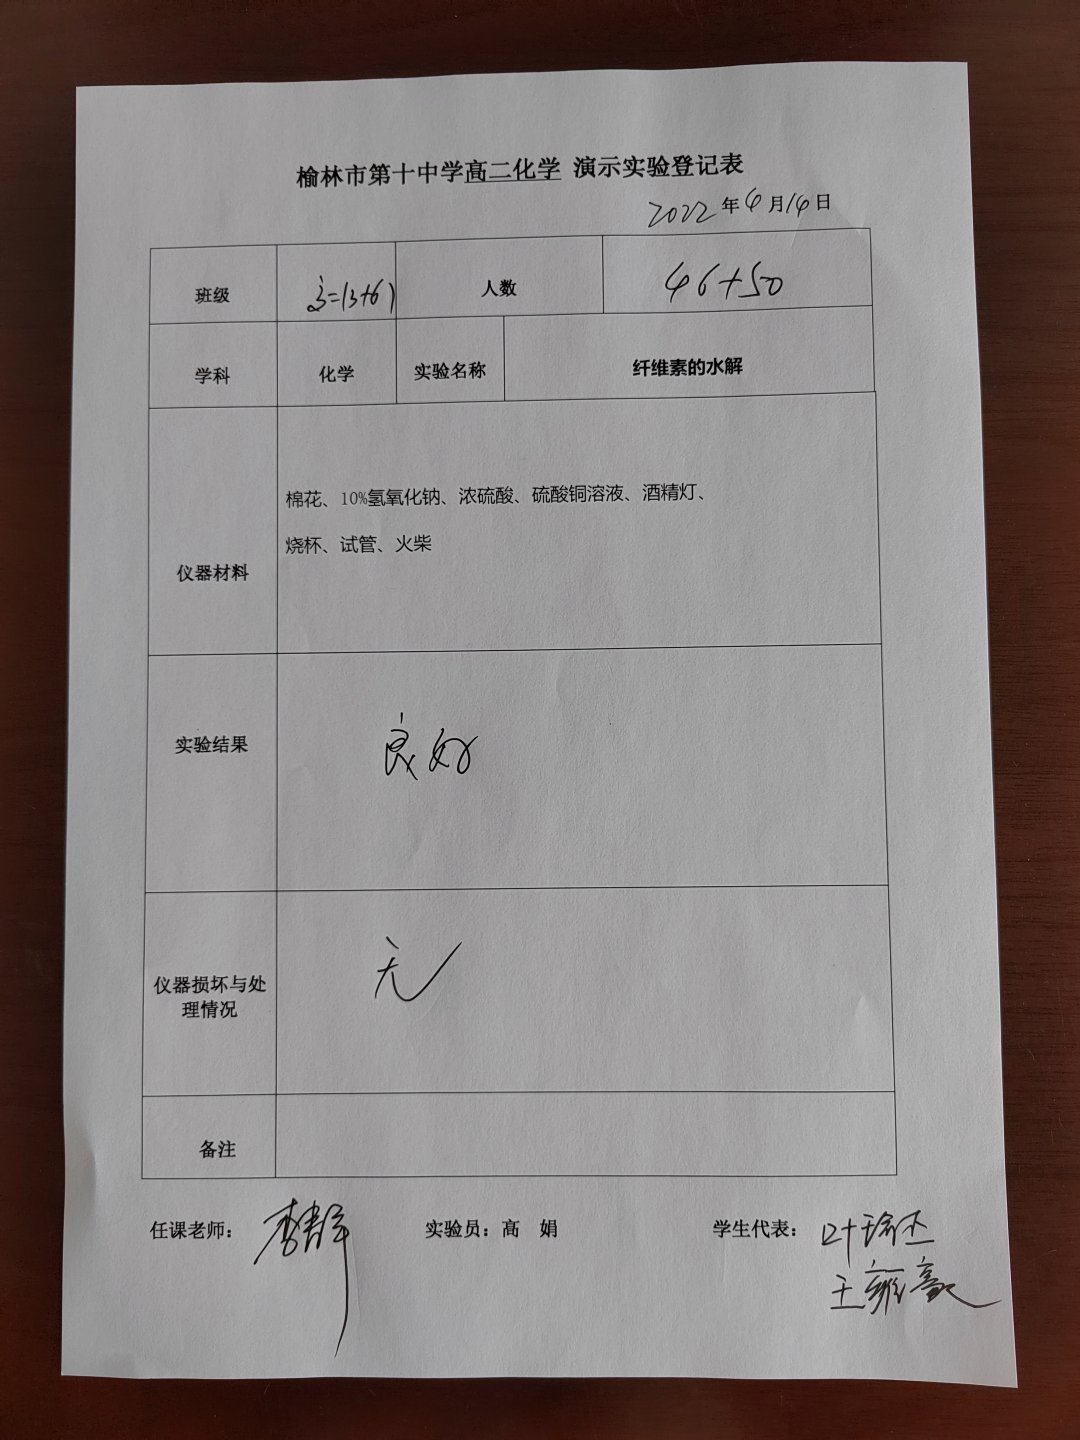 榆林市第十中学高二化学 演示实验登记表
2022年4月14日
班级 高二(3+6) 人数 46+50
学科 化学 实验名称 纤维素的水解
棉花、10%氢氧化钠、浓硫酸、硫酸铜溶液、酒精灯、
烧杯、试管、火柴
仪器材料
实验结果 良好
仪器损坏与处
理情况
无
备注
任课老师： 实验员：高 娟 学生代表：叶瑜丕
王雍豪